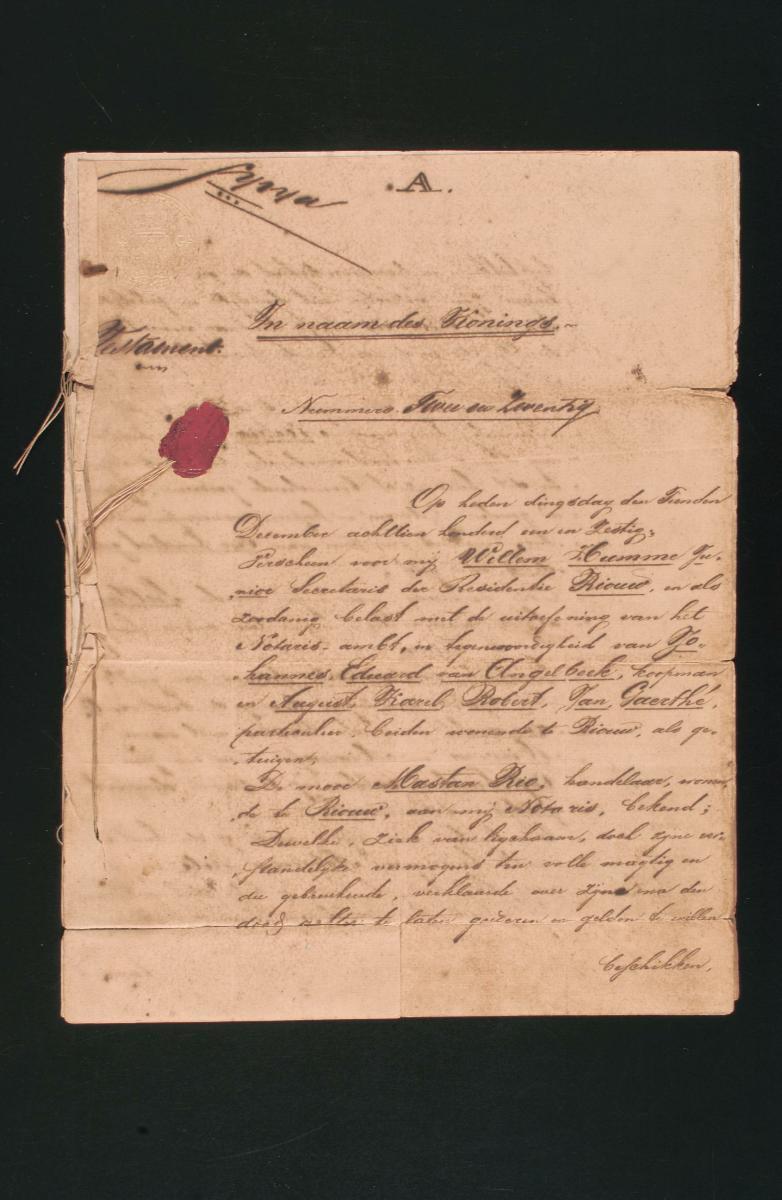 A.
In naam des Konings.
Testament.
Nummero Twee en Zeventig
Op heden dingsdag den Tienden
December achttien honderd een en Zestig,
Verscheen voor mij Willem Humme Ju-
nior Secretaris der Residentie Riouw, en als
zoodanig belast met de uitoefening van het
Notaris-ambt, in tegenwoordigheid van Jo-
hannes Eduard van Angelbeek, koopman
en August, Karel, Robert, Jan, Gaerthé,
particulier, beiden wonende te Riouw, als ge-
tuigen,
De moor Mastan Rio, handelaar, wonen-
de te Riouw, aan mij Notaris, bekend;
Dewelke, ziek van ligchaam, doch zijne ver-
standelijke vermogens ten volle magtig en
die gebruikende, verklaarde over zijne na den
dood achter te laten goederen en gelden te willen
beschikken,